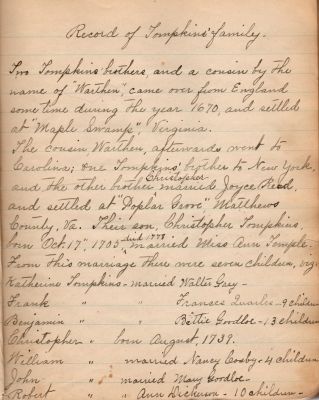 Record of Tompkins' family.
Two Tompkins' brothers, and a cousin by the
name of "Warthen", came over from England
some time during the year 1670, and settled
at "Maple Swamp," Virginia.
The cousin Warthen, afterwards went to
Carolina; one Tompkins' brother to New York,
Christopher
and the other brother married Joyce Reed,
and settled at "Poplar Grove" Matthews
County, Va. Their son, Christopher Tompkins,
died 1778
born Oct. 17th, 1705 married Miss Ann Temple.
From this marriage there were seven children, viz:
Katherine Tompkins - married Walter Gary -
Frank " " Frances Quarles - 9 children
Benjamin " " Bettie Goodloe - 13 children
Christopher " born August, 1739.
William " married Nancy Cosby - 4 children
John " married Mary Goodloe -
Robert " " Ann Dickerson - 10 children -